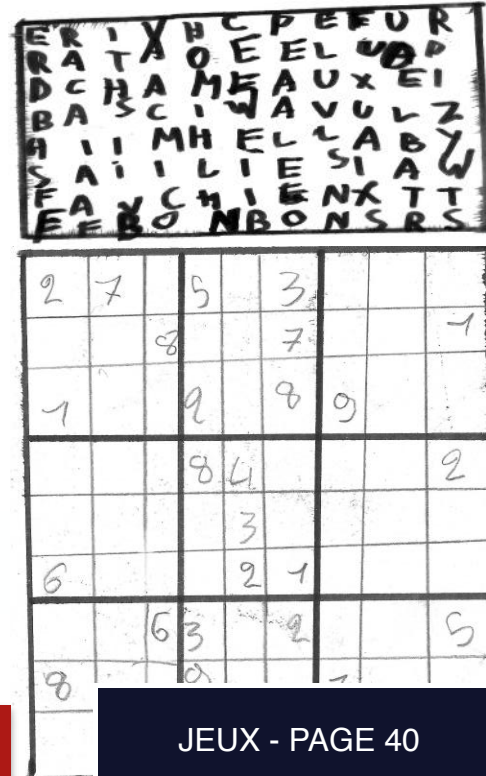 E R I X H C P E F U R
R A T A O E E L U D P
D C H A M E A U X E I
B A S C I W A V U L Z
A I I M H E L L A B Y
S A i I L I E S I A W
F A V C H I E N X T T
E F B O N B O N S R S
2 7 5 3
8 7 1
1 9 8 9
8 4 2
3
6 2 1
6 3 2 5
8
JEUX - PAGE 40